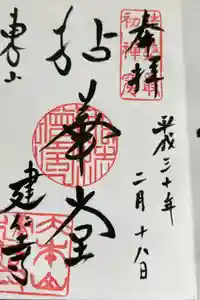 奉拝
平成三十年
二月十八日
拈華堂
東山
建仁寺